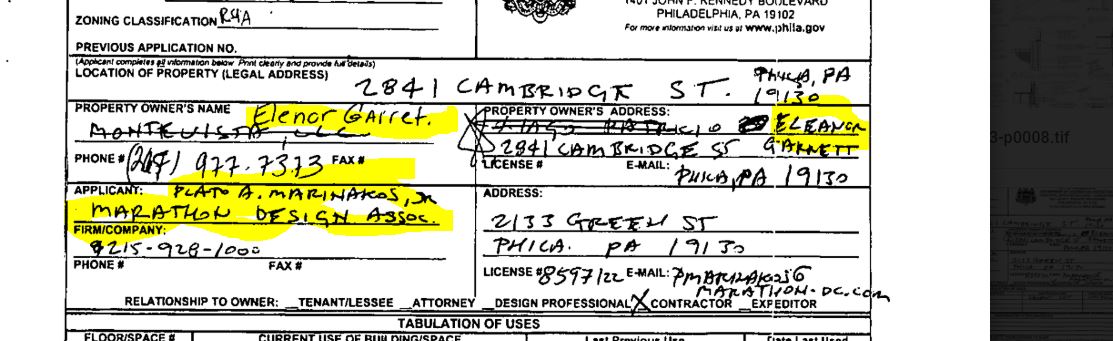 1401 JOHN F. KENNEDY BOULEVARD
ZONING CLASSIFICATION R4A
PHILADELPHIA, PA 19102
For more information visit us at www.phila.gov
PREVIOUS APPLICATION NO.
(Applicant completes all information below. Print clearly and provide full details)
LOCATION OF PROPERTY (LEGAL ADDRESS)
2841 CAMBRIDGE ST. PHILA, PA
19130
PROPERTY OWNER'S NAME Elenor Garret.
MONTEVISTA LLC
PROPERTY OWNER'S ADDRESS:
ELEANOR
2841 CAMBRIDGE ST GARNETT
PHONE # 977.7373 FAX #
LICENSE # E-MAIL:
PHILA, PA 19130
APPLICANT: PLATO A. MARINAKOS, JR
MARATHON DESIGN ASSOC.
FIRM/COMPANY:
215-928-1000
PHONE # FAX #
ADDRESS:
2133 GREEN ST
PHILA. PA 19130
LICENSE # 8597122 E-MAIL: PMARINAKOS@
MARATHON-DC.COM
RELATIONSHIP TO OWNER: TENANT/LESSEE ATTORNEY DESIGN PROFESSIONAL X CONTRACTOR EXPEDITOR
TABULATION OF USES
FLOOR/SPACE # CURRENT USE OF BUILDING/SPACE Last Previous Use Date Last Used
3-p0008.tif